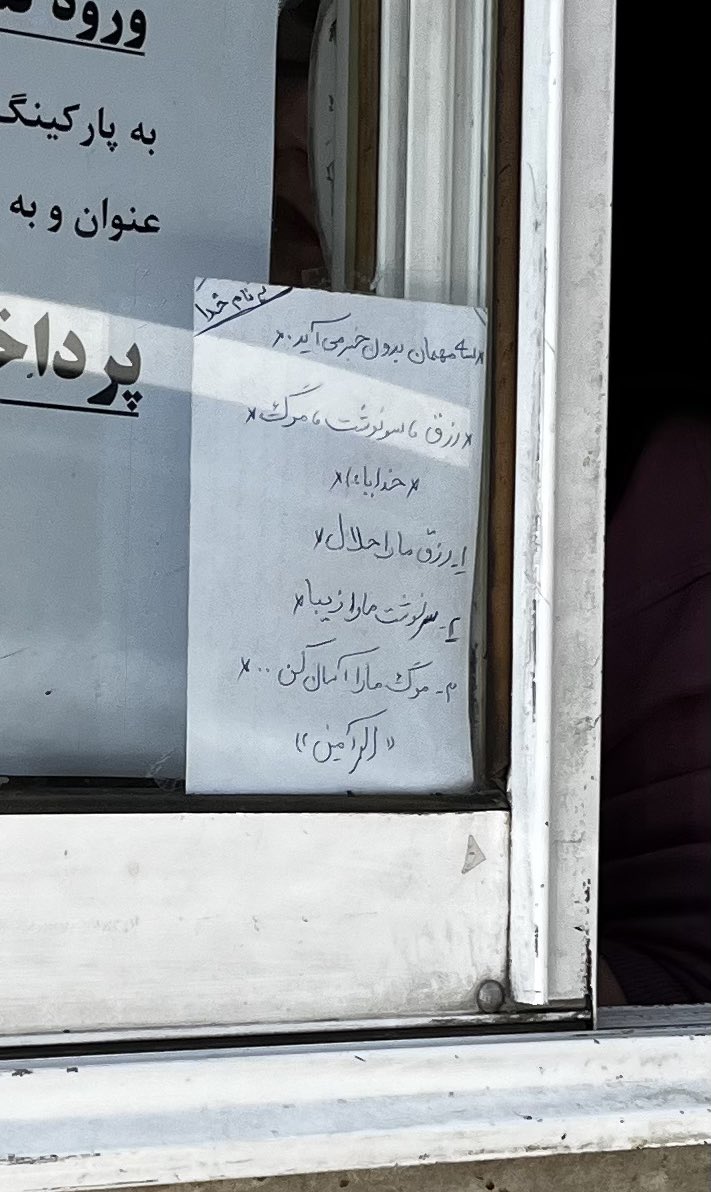 ورود
به پارکینگ
عنوان و به
پرداخ
به نام خدا
سه مهمان بدون خبر می آید..x
x رزق، سرنوشت، مرگ x
x خدایا x
1- رزق ما را حلال x
2- سرنوشت ما را زیبا x
3- مرگ ما را آسان کن .. x